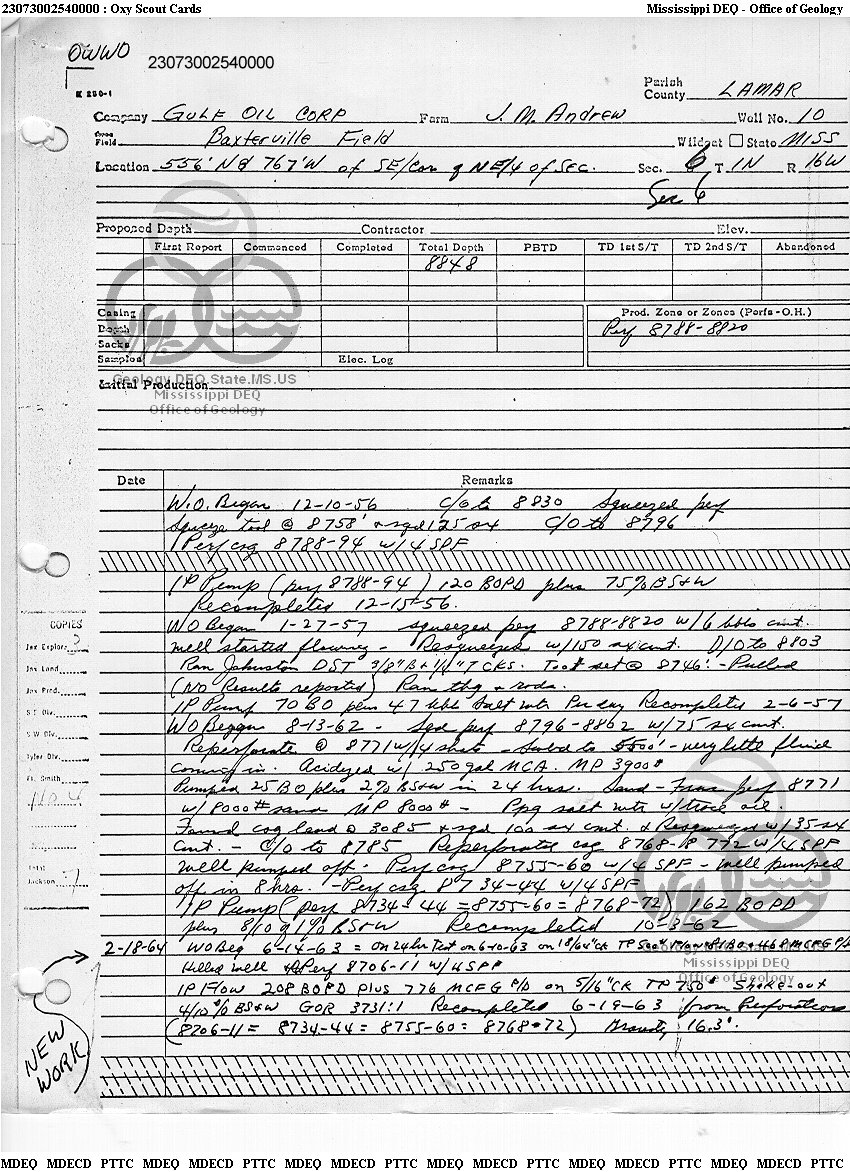 23073002540000 : Oxy Scout Cards Mississippi DEQ - Office of Geology
OWWO
23073002540000
K 250-1
Parish
County LAMAR
Company GULF OIL CORP Farm J. M. Andrew Well No. 10
Field Baxterville Field Wildcat State MISS
Location 556' N & 767' W of SE/Cor of NE/4 of Sec. Sec. 6 T 1N R 16W
Sec 6
Proposed Depth Contractor Elev.
First Report Commenced Completed Total Depth PBTD TD 1st S/T TD 2nd S/T Abandoned
8848
Casing Prod. Zone or Zones (Perfs-O.H.)
Depth Perf 8788-8820
Sacks
Samples Elec. Log
Geology.DEQ.State.MS.US
Initial Production
Mississippi DEQ
Office of Geology
Date Remarks
W.O. Began 12-10-56 C/O to 8830 Squeezed perf
Squeeze tool @ 8758' & sqd 125 sx C/O to 8796
Perf csg 8788-94 w/4 SPF
IP Pump (perf 8788-94) 120 BOPD plus 75% BS&W
Recompleted 12-15-56.
COPIES
WO Began 1-27-57 squeezed perf 8788-8820 w/6 bbls cmt.
Jax Explora ?
well started flowing - Resqueezed w/150 sx cmt. D/O to 8803
Jax Land
Ran Johnston DST 3/8" B & 1/4" T CKS. Tool set @ 8746'. - Pulled
Jax Prod.
(No Results reported) Ran tbg & rods.
S.T. Div.
IP Pump 70 BO plus 47 bbls Salt wtr Per day Recompleted 2-6-57
S.W. Div.
WO Began 8-13-62 - Sqd perf 8796-8802 w/75 sx cmt.
Tyler Div.
Reperforate @ 8771 w/4 shots - Swbd to 5500' - very little fluid
Ft. Smith
coming in. Acidized w/ 250 gal MCA. MP 3900#
Pumped 25 BO plus 2% BS&W in 24 hrs. Sand-Frac perf 8771
w/8000# sand MP 8000# - Ppg salt wtr w/trace oil.
Found csg leak @ 3085 & sqd 100 sx cmt. & Resqueezed w/35 sx
cmt. - C/O to 8785 Reperforated csg 8768-8772 w/4 SPF
Well pumped off. Perf csg 8755-60 w/4 SPF - Well pumped
Total
Jackson 7
off in 8 hrs. - Perf csg 8734-44 w/4 SPF
IP Pump (perf 8734-44 = 8755-60 = 8768-72) 162 BOPD
plus 8/10 of 1% BS&W Recompleted 10-3-62
2-18-64 WO Beg 6-14-63 = On 24 hr Test on 6-10-63 on 18/64" CK TP 500# Flow 181 BO & 468 MCFG P/D
Killed well & Perf 8706-11 w/4 SPF
IP Flow 208 BOPD Plus 776 MCFG P/D on 5/16" CK TP 750# Shake-out
4/10 % BS&W GOR 3731:1 Recompleted 6-19-63 from Perforations
(8706-11 = 8734-44 = 8755-60 = 8768-72) Gravity 16.3°.
NEW
WORK
Geology.DEQ.State.MS.US
Mississippi DEQ
Office of Geology
MDEQ MDECD PTTC MDEQ MDECD PTTC MDEQ MDECD PTTC MDEQ MDECD PTTC MDEQ MDECD PTTC MDEQ MDECD PTTC MDEQ MDECD PTTC